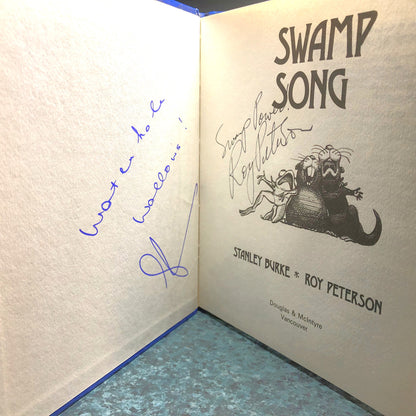 Water hole
wallows!
SWAMP
SONG
Swamp Power
Roy Peterson
STANLEY BURKE * ROY PETERSON
Douglas & McIntyre
Vancouver